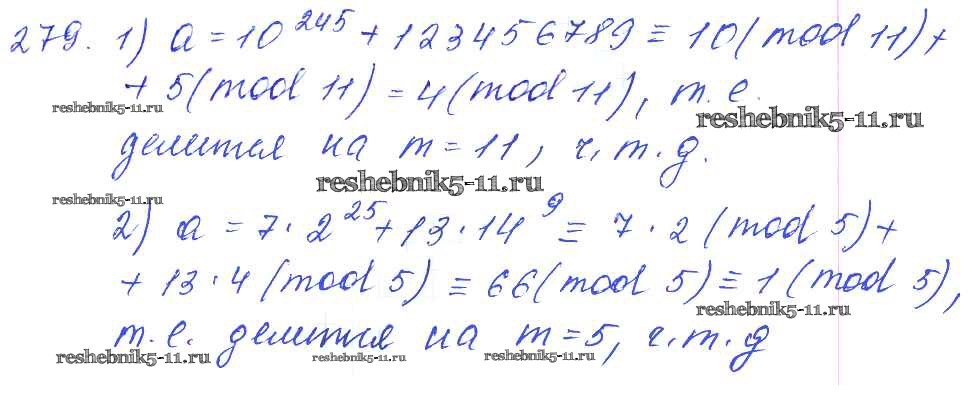 279. 1) a = 10^245 + 123456789 ≡ 10 (mod 11) +
+ 5 (mod 11) = 4 (mod 11), т. е.
reshebnik5-11.ru
reshebnik5-11.ru
делится на m = 11, ч. т. д.
reshebnik5-11.ru
reshebnik5-11.ru
2) a = 7 · 2^25 + 13 · 14^9 ≡ 7 · 2 (mod 5) +
+ 13 · 4 (mod 5) ≡ 66 (mod 5) ≡ 1 (mod 5),
reshebnik5-11.ru
т. е. делится на m = 5, ч. т. д
reshebnik5-11.ru reshebnik5-11.ru reshebnik5-11.ru